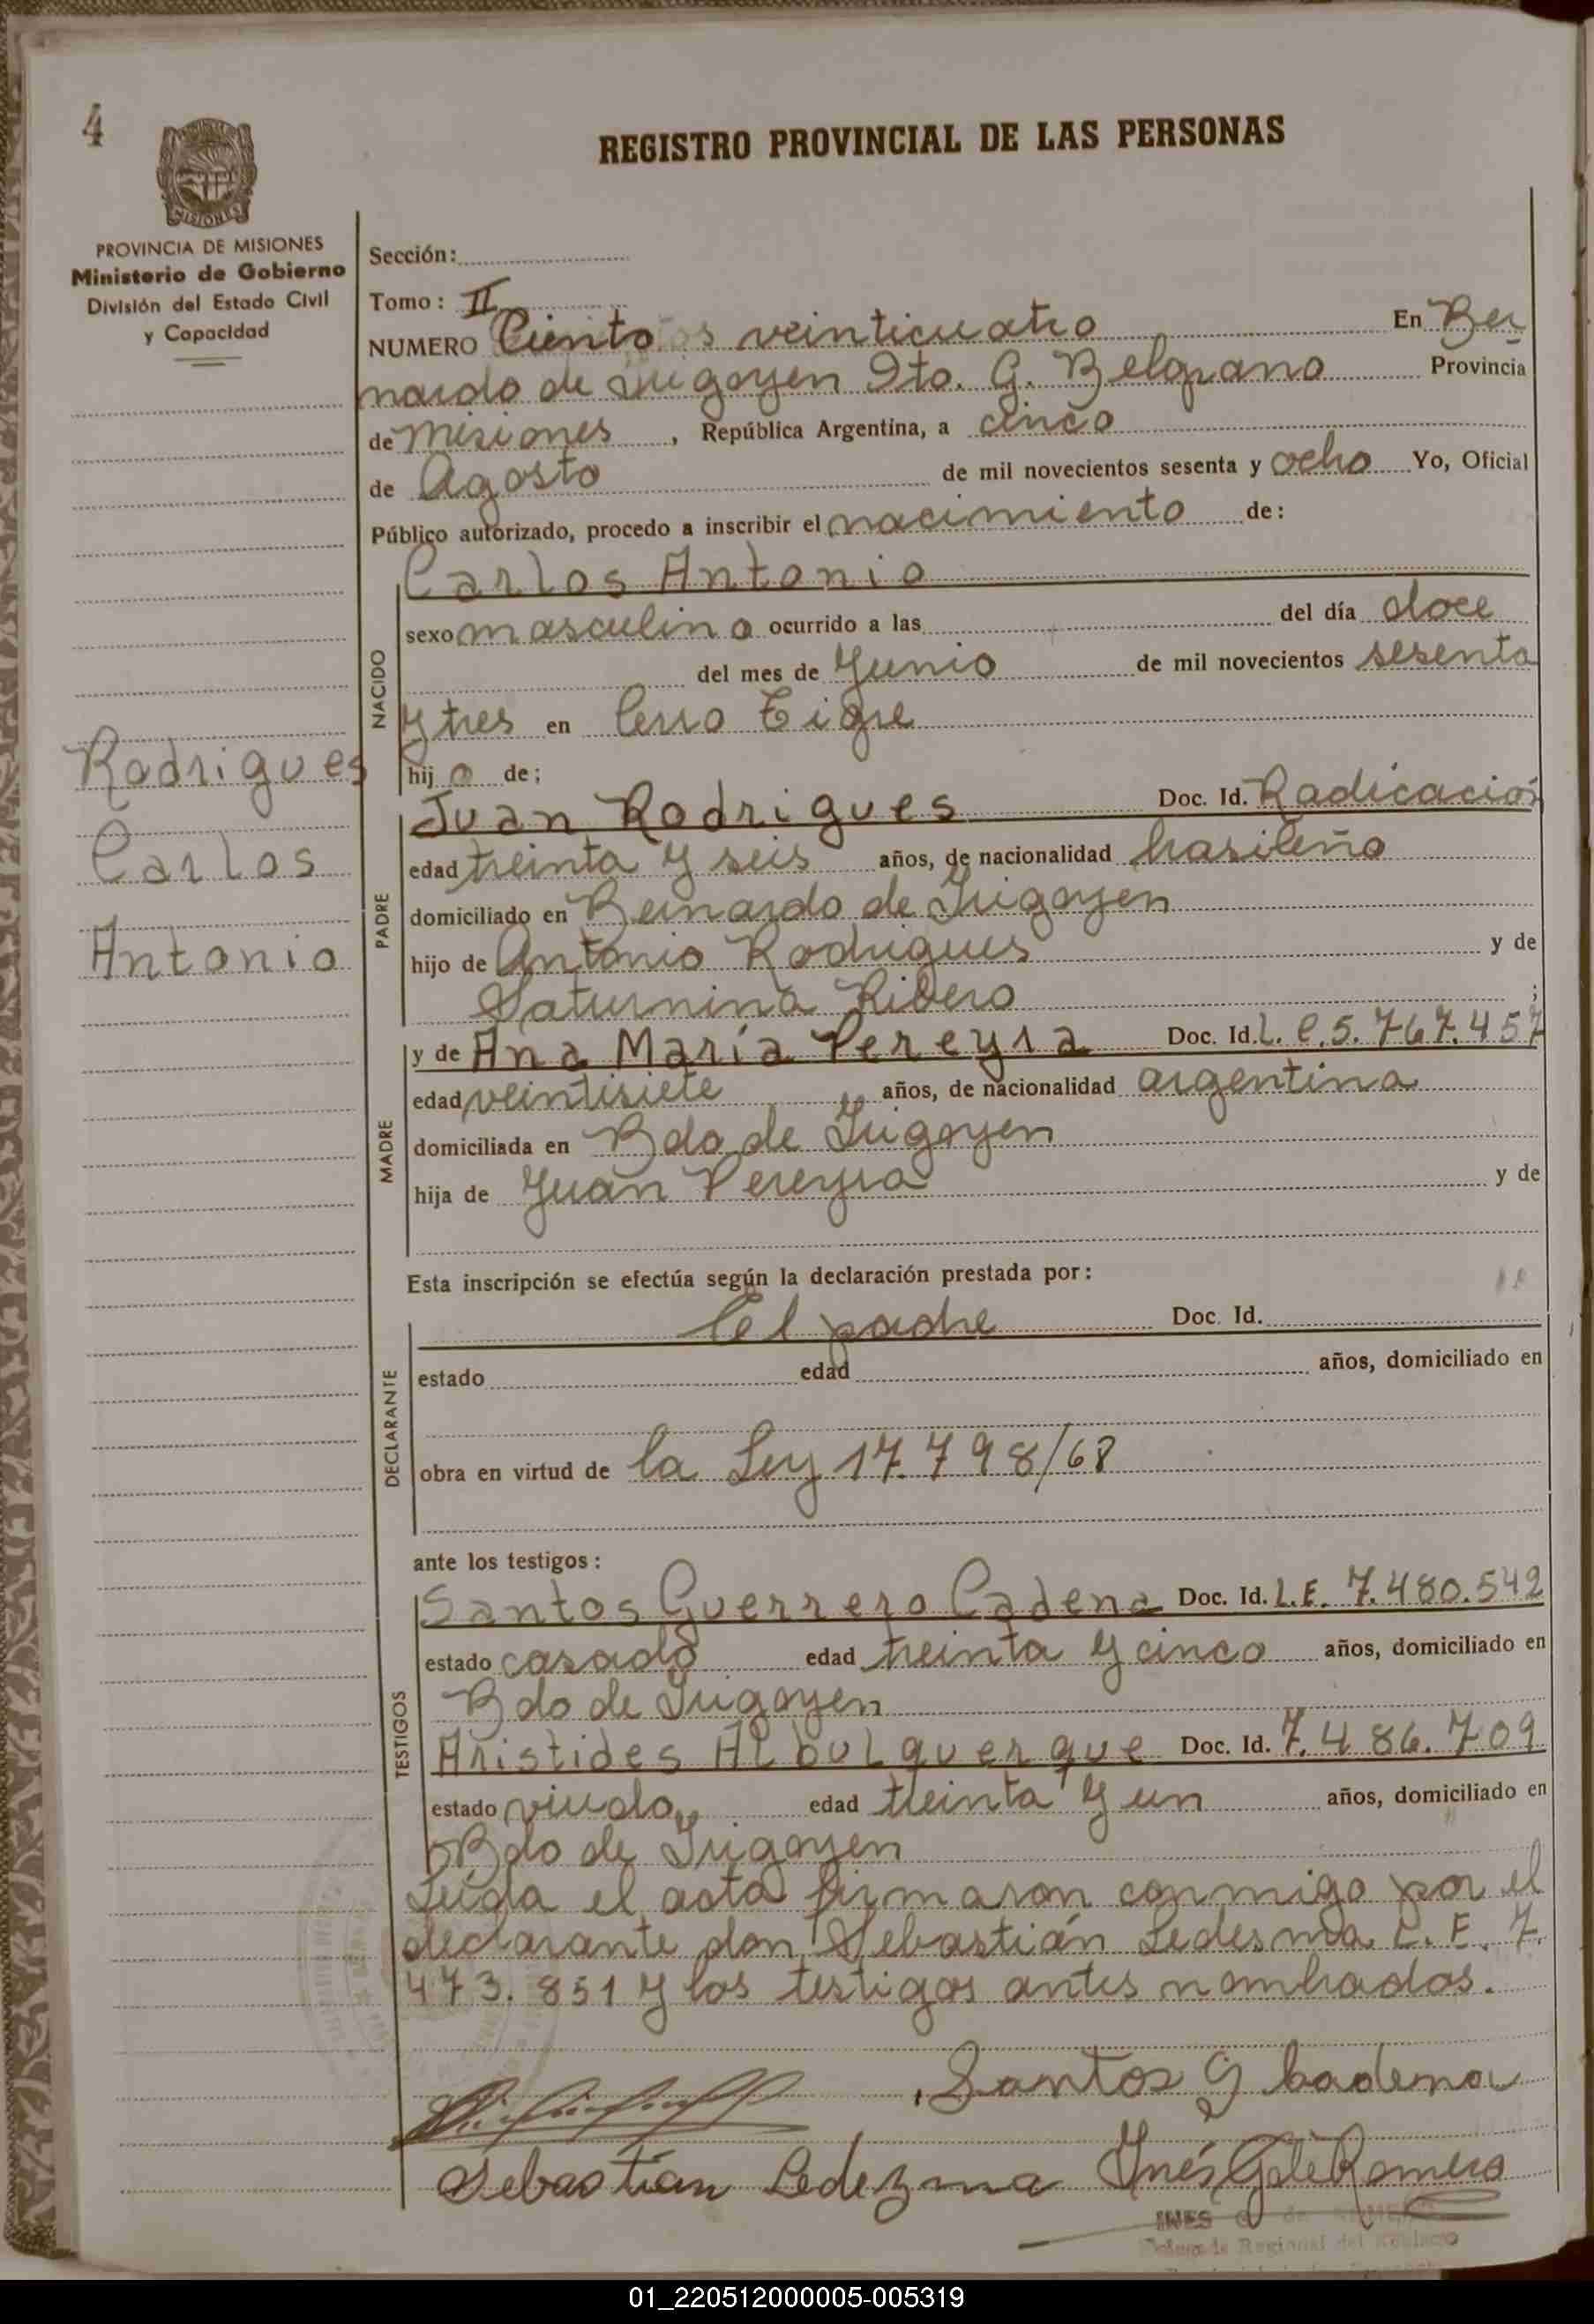 4
REGISTRO PROVINCIAL DE LAS PERSONAS
MISIONES
PROVINCIA DE MISIONES
Ministerio de Gobierno
División del Estado Civil
y Capacidad
Sección:
Tomo: II
NUMERO Ciento veinticuatro En Ber
nardo de Irigoyen Dto. G. Belgrano Provincia
de Misiones, República Argentina, a cinco
de Agosto de mil novecientos sesenta y ocho Yo, Oficial
Público autorizado, procedo a inscribir el nacimiento de:
NACIDO
Carlos Antonio
sexo masculino ocurrido a las del día doce
del mes de Junio de mil novecientos sesenta
y tres en Cerro Tigre
hijo de;
Rodrigues
Carlos
Antonio
PADRE
Juan Rodrigues Doc. Id. Radicación
edad treinta y seis años, de nacionalidad brasileño
domiciliado en Bernardo de Irigoyen
hijo de Antonio Rodrigues y de
Saturnina Ribero ;
MADRE
y de Ana María Pereyra Doc. Id. L. C. 5.767.457
edad veintisiete años, de nacionalidad argentina
domiciliada en Bdo de Irigoyen
hija de Juan Pereyra y de
Esta inscripción se efectúa según la declaración prestada por:
DECLARANTE
el padre Doc. Id.
estado edad años, domiciliado en
obra en virtud de la Ley 17.798/68
ante los testigos:
TESTIGOS
Santos Guerrero Cadena Doc. Id. L.E. 7.480.542
estado casado edad treinta y cinco años, domiciliado en
Bdo de Irigoyen
Aristides Albulquerque Doc. Id. 7.486.709
estado viudo edad treinta y un años, domiciliado en
Bdo de Irigoyen
Leída el acta firmaron conmigo por el
declarante don Sebastián Ledesma L. E. 7.
473.851 y los testigos antes nombrados.
Santos G Cadena
Sebastian Ledezma Inés G de Romero
INES G de ROMERO
Regional del Registro
01_220512000005-005319